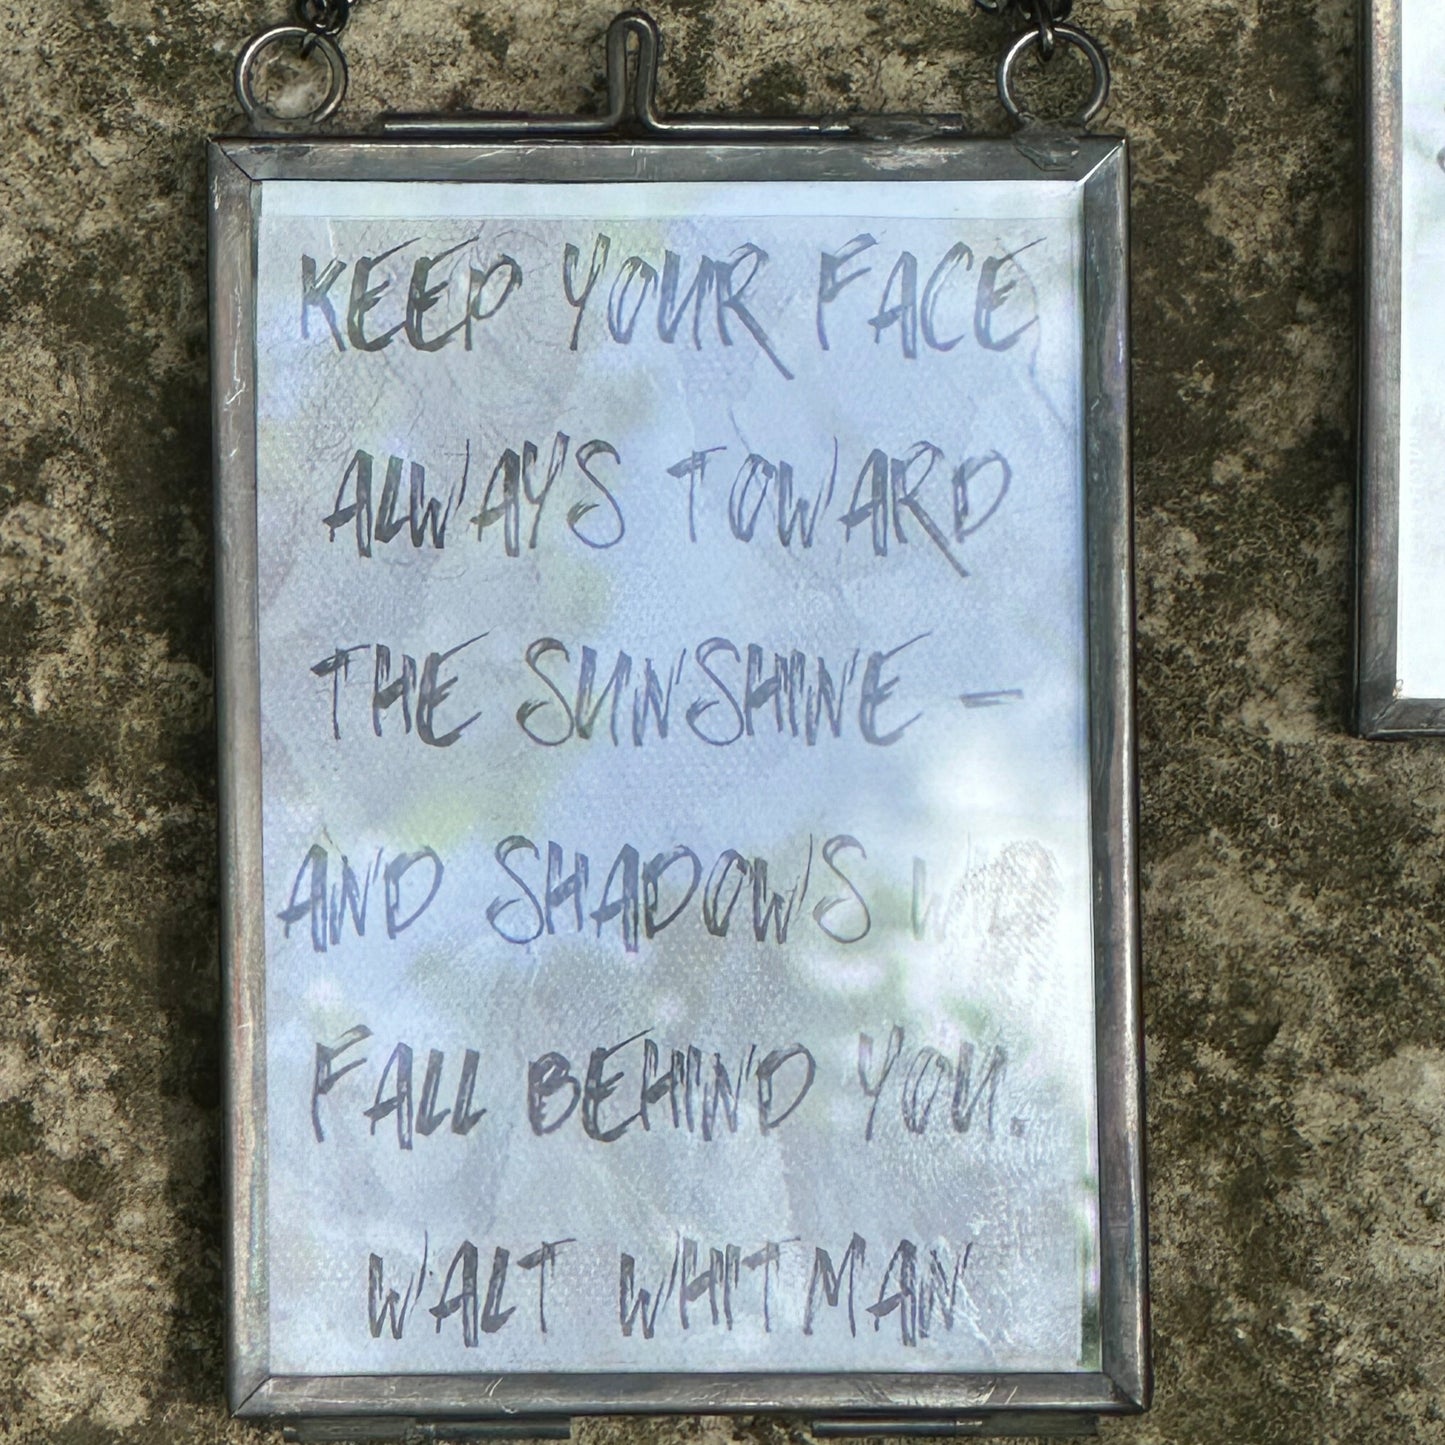 KEEP YOUR FACE
ALWAYS TOWARD
THE SUNSHINE –
AND SHADOWS
FALL BEHIND YOU.
WALT WHITMAN